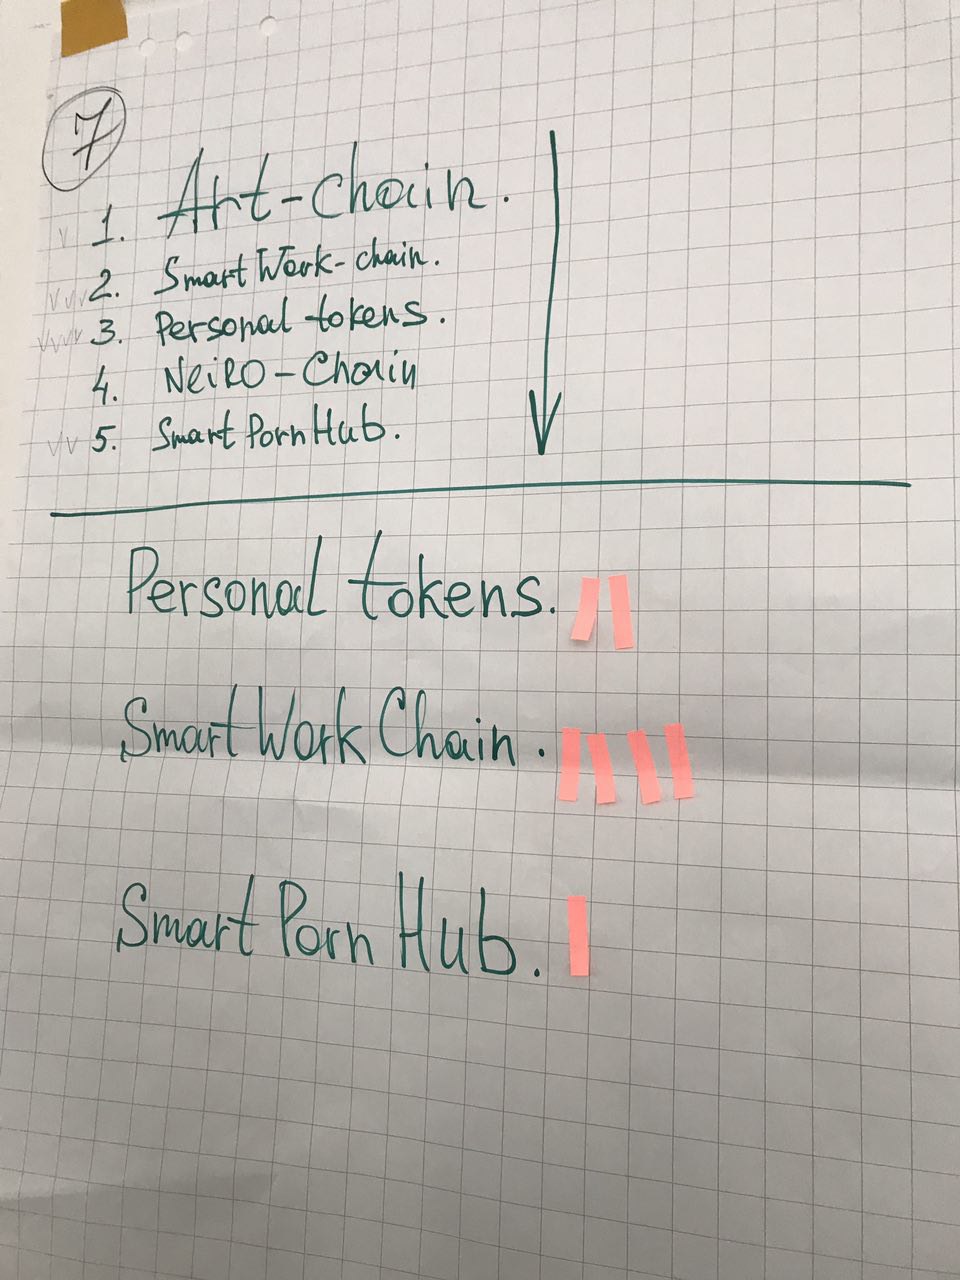 7
1. Art-chain.
2. Smart Work-chain.
3. Personal tokens.
4. NeiRO-Chain
5. Smart PornHub.
Personal tokens.
Smart Work Chain.
Smart Porn Hub.